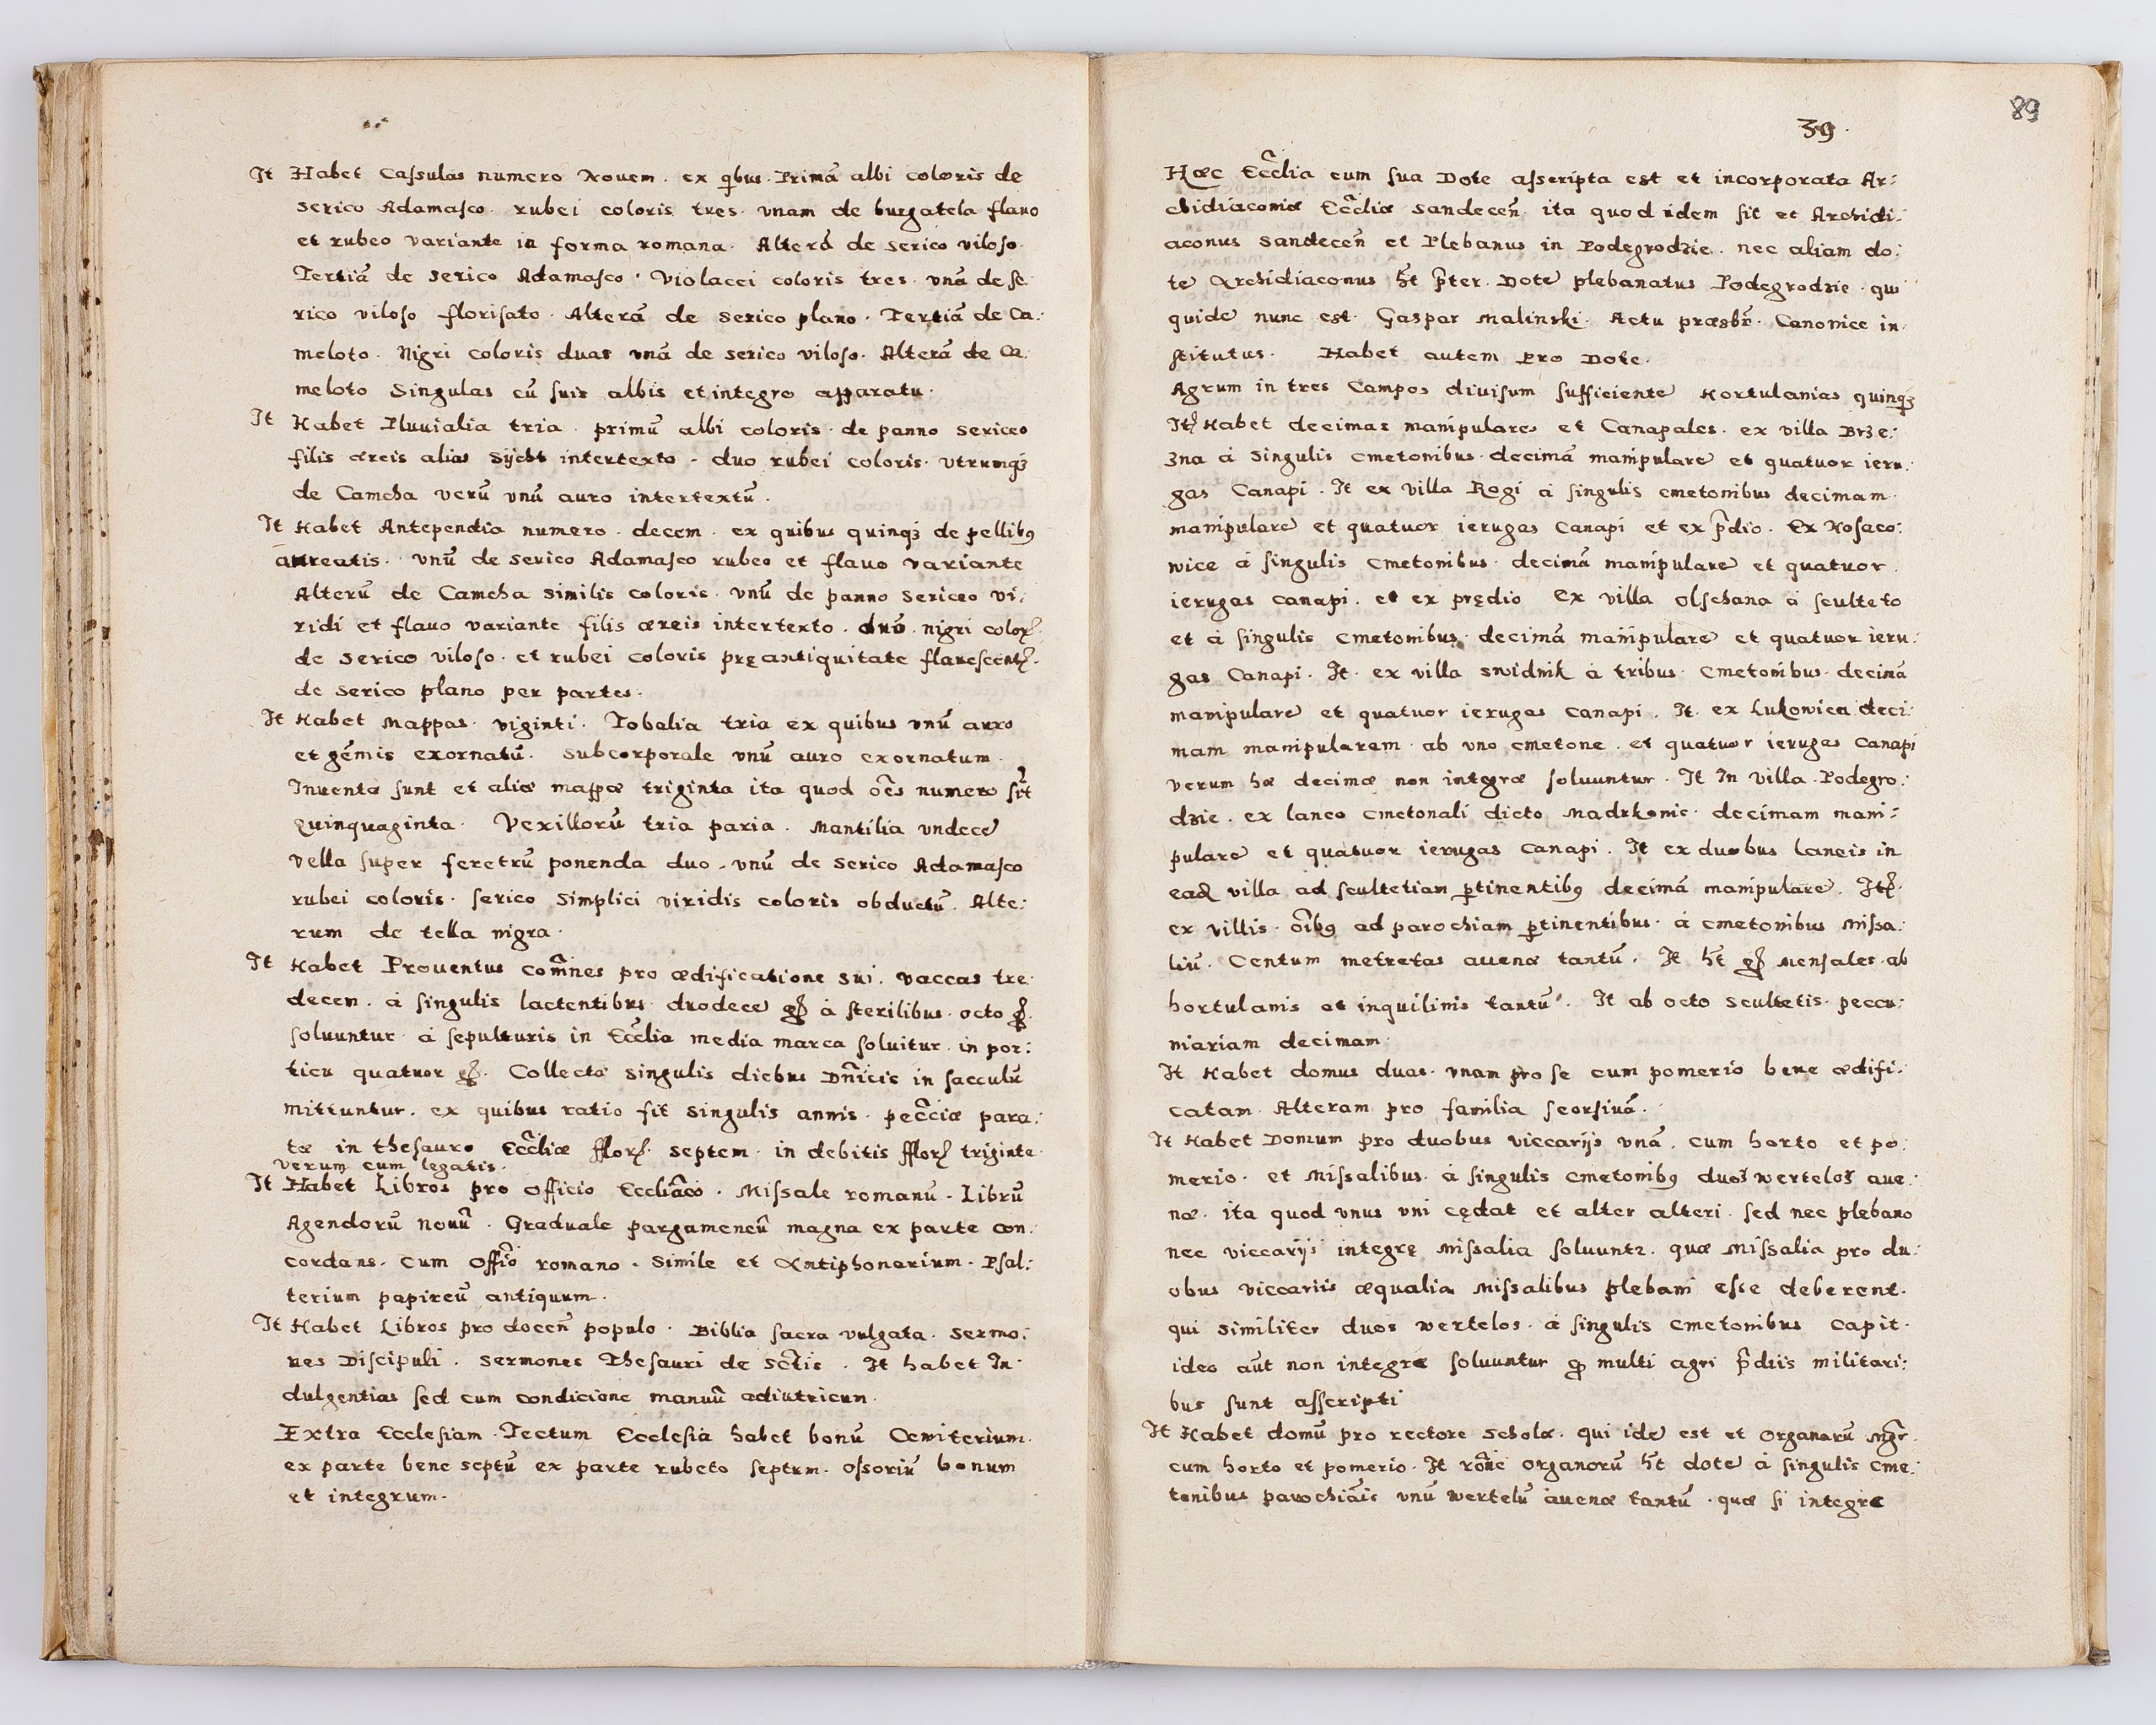 It Habet Caſsulas numero Nouem. ex qībus. Primā albi coloris de
serico Adamaſco. rubei coloris tres. vnam de burgatela flauo
et rubeo variante in forma romana. Alterā de serico viloſo.
Tertiā de serico Adamaſco. Violacei coloris tres. vnā de ſe
rico viloſo floriſato. Alterā de serico plano. Tertiā de Ca:
meloto. Nigri coloris duas vnā de serico viloſo. Alterā de Ca.
meloto Singulas cū ſuis albis et integro apparatu.
It Habet Pluuialia tria. primū albi coloris. de panno sericeo
filis æreis alias Sÿcht intertexto. duo rubei coloris. vtrumqꝫ
de Camcha verū vnū auro intertextū.
It Habet Antependia numero. decem. ex quibus quinqꝫ de pellibꝰ
aureatis. vnū de serico Adamaſco rubeo et flauo variante
Alterū de Camcha similis coloris. vnū de panno sericeo vi:
ridi et flauo variante filis æreis intertexto. duo. nigri color
de serico viloſo. et rubei coloris pręantiquitate flaueſcent
de serico plano per partes.
It Habet Mappas. viginti. Tobalia tria ex quibus vnū auro
et gēmis exornatū. Subcorporale vnū auro exornatum.
Inuenta ſunt et aliæ mappæ triginta ita quod oēs numero ſīt
Quinquaginta. Vexillorū tria paria. Mantilia vndece
vella ſuper feretrū ponenda duo. vnū de serico Adamaſco
rubei coloris. ſerico simplici viridis coloris obductū. Alte:
rum de tella nigra.
It Habet Prouentus com̄nes pro ædificatione sui. vaccas tre
decem. á ſingulis lactentibus duodece gſ á ſterilibus. octo gſ.
ſoluuntur. á ſepulturis in Eccl̄ia media marca ſoluitur. in por:
ticu quatuor gſ. Collecta singulis diebus Dn̄icis in ſacculū
mittuntur. ex quibus ratio fit singulis annis. pecc̄iæ para:
tæ in theſauro Eccl̄iæ fflor. septem. in debitis fflor triginta.
verum cum legatis.
It Habet Libros pro officio Eccliāco. Miſsale romanū. Librū
Agendorū nouū. Graduale pargameneū magna ex parte con:
cordans. cum offi̅o romano. Simile et Antiphonarium. Pſal:
terium papireū antiquum.
It Habet Libros pro docen̄ populo. Biblia ſacra vulgata. Sermo:
nes Diſcipuli. Sermones Theſauri de Sctīs. It habet In:
dulgentias ſed cum condicione manuū adiutricum.
Extra Eccleſiam. Tectum Eccleſia habet bonū Cæmiterium.
ex parte bene septū ex parte rubeto ſeptum. Oſsoriū bonum
et integrum.
89
39.
Hæc Eccl̄ia cum ſua Dote aſscripta est et incorporata Ar:
chidiaconiæ Eccl̄iæ Sandecen̄. ita quod idem ſit et Archidi:
aconus Sandecen̄ et Plebanus in Podegrodzie. nec aliam do:
te Archidiaconus h̄t p̄ter. Dote plebanatus Podegrodzie. qui
quide nunc est. Gaspar Malinski. Actu præsbr̄. Canonice in.
ſtitutus. Habet autem pro Dote.
Agrum in tres Campos diuiſum ſufficiente Hortulanias quinqꝫ
It Habet decimas manipulares et Canapales. ex villa Brze:
zna á singulis cmetonibus. decimā manipulare et quatuor ieru.
gas Canapi. It ex villa Rogi á ſingulis cmetonibus decimam
manipulare et quatuor ierugas Canapi et ex p̄dio. Ex Noſaco:
wice á ſingulis cmetonibus. decimā manipulare et quatuor
ierugas canapi. et ex prędio Ex villa Olſchana á ſculteto
et á ſingulis cmetonibus. decimā manipulare et quatuor ieru:
gas Canapi. It. ex villa Swidnik á tribus. Cmetonibus. decimā
manipulare et quatuor ierugas canapi. It. ex Lukowica deci:
mam manipularem. ab vno cmetone. et quatuor ierugas Canapi
verum hæ decimæ non integræ ſoluuntur. It In villa. Podegro:
dzie. ex laneo cmetonali dicto Madrkonic. decimam mani:
pulare et quatuor ierugas canapi. It ex duobus laneis in
ead villa ad ſcultetiam ꝑtinentibꝰ decimā manipulare. It.
ex villis. oībꝰ ad parochiam ꝑtinentibus. á cmetonibus Miſsa:
liū. Centum metretas auenæ tantū. It h̄t gſ Menſales. ab
hortulanis et inquilinis tantū. It ab octo scultetis. peccu:
niariam decimam.
It Habet domus duas. vnam pro ſe cum pomerio bene ædifi:
catam. Alteram pro familia ſeorſiuā.
It Habet Domum pro duobus viccarijs vnā. cum horto et po:
merio. et Miſsalibus. á ſingulis cmetonibꝰ duos wertelos aue:
næ. ita quod vnus vni cędat et alter alteri. ſed nec plebano
nec viccarijs integrę miſsalia ſoluuntr. quæ Miſsalia pro du:
obus viccariis æqualia Miſsalibus plebani eſse deberent.
qui similiter duos wertelos. á ſingulis cmetonibus capit.
ideo aūt non integræ ſoluuntur q multi agri p̄diis militari:
bus ſunt aſscripti
It Habet domū pro rectore scholæ. qui ide est et Organarū mgr̄.
cum horto et pomerio. It rōne organorū h̄t dote á ſingulis Cme:
tonibus parochiāis vnū wertelū auenæ tantū. quæ ſi integræ